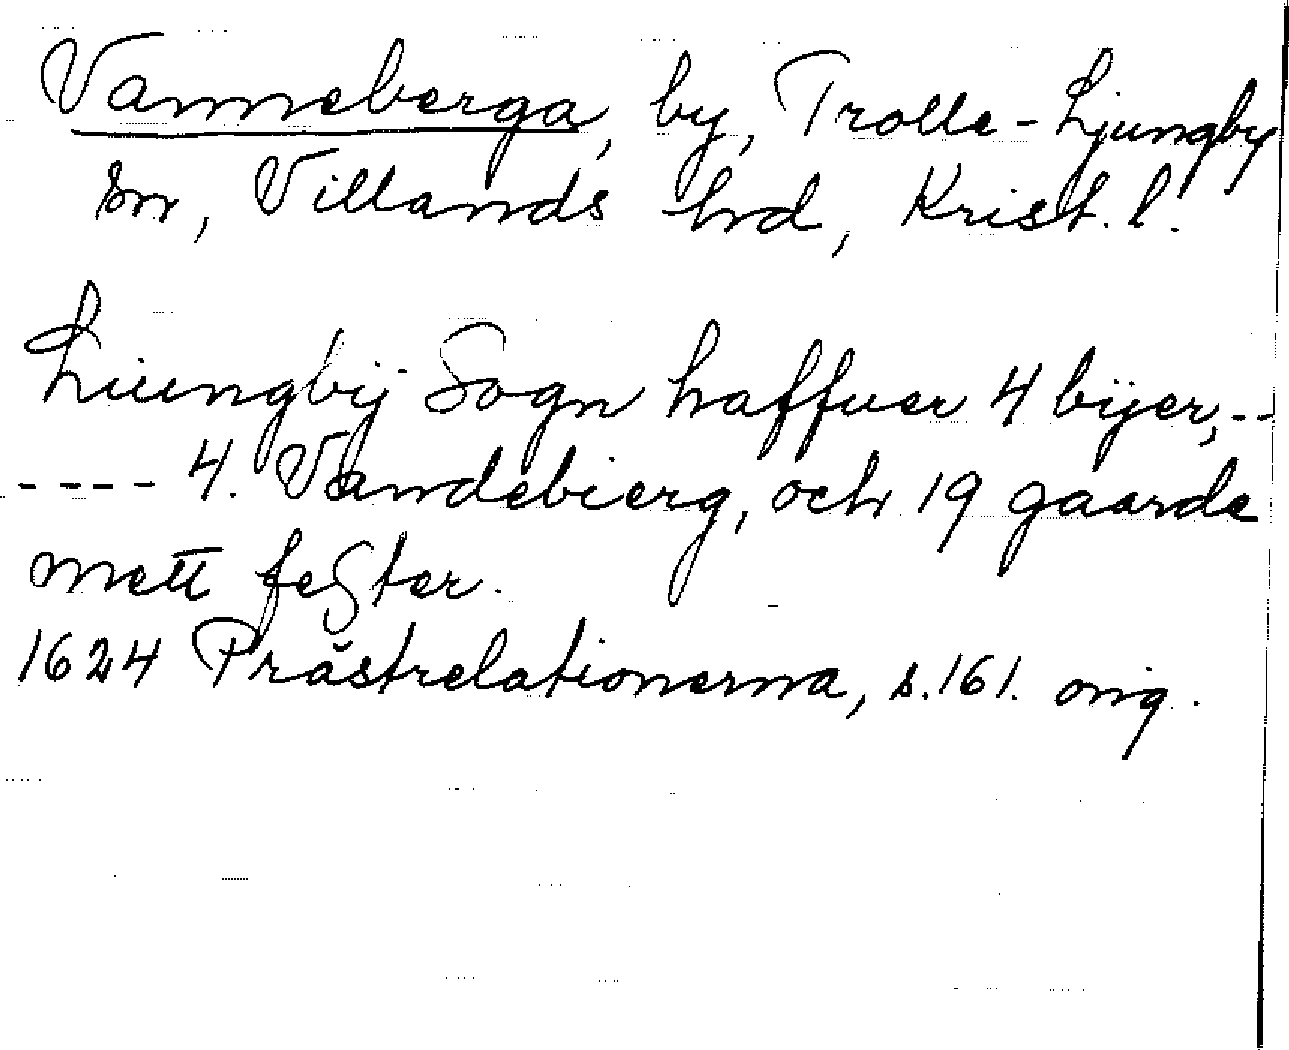 Vanneberga, by, Trolle-Ljungby
sn, Villands hrd, Krist. l.
Liungbÿ Sogn haffuer 4 bÿer, --
---- 4. Vandebierg, och 19 gaarde
mett fester.
1624 Prästrelationerna, s. 161. orig.